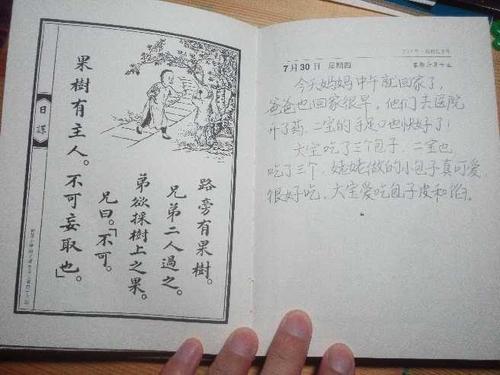 路旁有果樹。
兄弟二人過之。
弟欲採樹上之果。
兄曰。「不可。
果樹有主人。不可妄取也。」
日課
7月30日 星期四
今天妈妈中午就回家了,
爸爸也回家很早,他们去医院
开了药,二宝的手足口也快好了!
大宝吃了三个包子,二宝也
吃了三个,姥姥做的小包子真可爱
很好吃,大宝爱吃包子皮和馅。